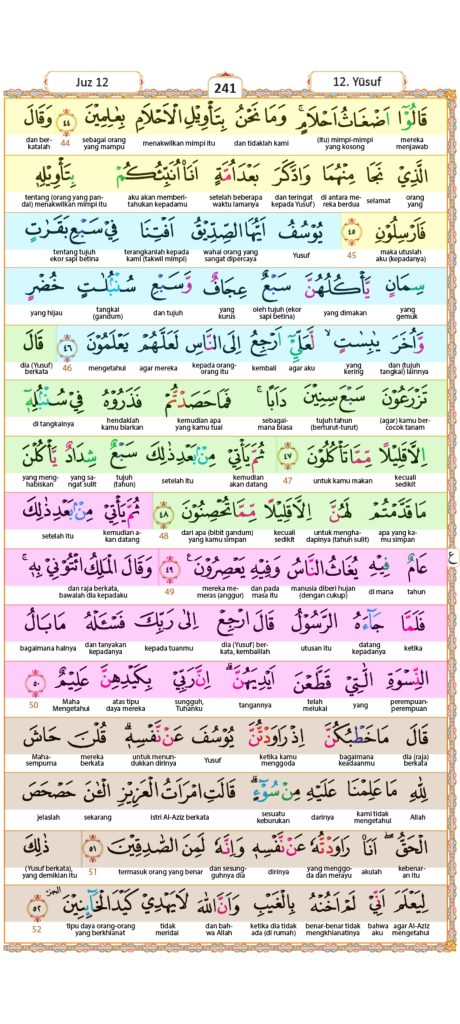 Juz 12
241
12. Yūsuf
قَالُوْٓا اَضْغَاثُ اَحْلَامٍ ۚ وَمَا نَحْنُ بِتَأْوِيْلِ الْاَحْلَامِ بِعٰلِمِيْنَ ٤٤ وَقَالَ
mereka menjawab (itu) mimpi-mimpi yang kosong dan tidaklah kami menakwilkan mimpi itu sebagai orang yang mampu 44 dan ber-katalah
الَّذِيْ نَجَا مِنْهُمَا وَادَّكَرَ بَعْدَ اُمَّةٍ اَنَا۠ اُنَبِّئُكُمْ بِتَأْوِيْلِهٖ
orang yang selamat di antara me-reka berdua dan teringat kepada Yusuf) setelah beberapa waktu lamanya aku akan memberi-tahukan kepadamu tentang (orang yang pan-dai) menakwilkan mimpi itu
فَاَرْسِلُوْنِ ٤٥ يُوْسُفُ اَيُّهَا الصِّدِّيْقُ اَفْتِنَا فِيْ سَبْعِ بَقَرٰتٍ
maka utuslah aku (kepadanya) 45 Yusuf wahai orang yang sangat dipercaya terangkanlah kepada kami (takwil mimpi) tentang tujuh ekor sapi betina
سِمَانٍ يَّأْكُلُهُنَّ سَبْعٌ عِجَافٌ وَّسَبْعِ سُنْۢبُلٰتٍ خُضْرٍ
yang gemuk yang dimakan oleh tujuh (ekor sapi betina) yang kurus dan tujuh tangkai (gandum) yang hijau
وَّاُخَرَ يٰبِسٰتٍ ۙ لَّعَلِّيْٓ اَرْجِعُ اِلَى النَّاسِ لَعَلَّهُمْ يَعْلَمُوْنَ ٤٦ قَالَ
dan (tujuh tangkai) lainnya yang kering agar aku kembali kepada orang-orang itu agar mereka mengetahui 46 dia (Yusuf) berkata
تَزْرَعُوْنَ سَبْعَ سِنِيْنَ دَاَبًا ۚ فَمَا حَصَدْتُّمْ فَذَرُوْهُ فِيْ سُنْۢبُلِهٖٓ
(agar) kamu ber-cocok tanam tujuh tahun (berturut-turut) sebagai-mana biasa kemudian apa yang kamu tuai hendaklah kamu biarkan di tangkainya
اِلَّا قَلِيْلًا مِّمَّا تَأْكُلُوْنَ ٤٧ ثُمَّ يَأْتِيْ مِنْۢ بَعْدِ ذٰلِكَ سَبْعٌ شِدَادٌ يَّأْكُلْنَ
kecuali sedikit untuk kamu makan 47 kemudian akan datang setelah itu tujuh (tahun) yang sa-ngat sulit yang meng-habiskan
مَا قَدَّمْتُمْ لَهُنَّ اِلَّا قَلِيْلًا مِّمَّا تُحْصِنُوْنَ ٤٨ ثُمَّ يَأْتِيْ مِنْۢ بَعْدِ ذٰلِكَ
apa yang ka-mu simpan untuk mengha-dapinya (tahun sulit) kecuali sedikit dari apa (bibit gandum) yang kamu simpan 48 kemudian a-kan datang setelah itu
عَامٌ فِيْهِ يُغَاثُ النَّاسُ وَفِيْهِ يَعْصِرُوْنَ ٤٩ وَقَالَ الْمَلِكُ ائْتُوْنِيْ بِهٖ ۚ
tahun di mana manusia diberi hujan (dengan cukup) dan pada masa itu mereka me-meras (anggur) 49 dan raja berkata, bawalah dia kepadaku
ع
فَلَمَّا جَاۤءَهُ الرَّسُوْلُ قَالَ ارْجِعْ اِلٰى رَبِّكَ فَسْـَٔلْهُ مَا بَالُ
ketika datang kepadanya utusan itu dia (Yusuf) ber-kata, kembalilah kepada tuanmu dan tanyakan kepadanya bagaimana halnya
النِّسْوَةِ الّٰتِيْ قَطَّعْنَ اَيْدِيَهُنَّ ۗ اِنَّ رَبِّيْ بِكَيْدِهِنَّ عَلِيْمٌ ٥٠
perempuan-perempuan yang telah melukai tangannya sungguh, Tuhanku atas tipu daya mereka Maha Mengetahui 50
قَالَ مَا خَطْبُكُنَّ اِذْ رَاوَدْتُّنَّ يُوْسُفَ عَنْ نَّفْسِهٖ ۗ قُلْنَ حَاشَ
dia (raja) berkata bagaimana keadaanmu ketika kamu menggoda Yusuf untuk menun-dukkan dirinya mereka berkata Maha-sempurna
لِلّٰهِ مَا عَلِمْنَا عَلَيْهِ مِنْ سُوْۤءٍ ۗ قَالَتِ امْرَاَتُ الْعَزِيْزِ الْـٰٔنَ حَصْحَصَ
Allah kami tidak mengetahui darinya sesuatu keburukan berkata istri Al-Aziz sekarang jelaslah
الْحَقُّ ۖ اَنَا۠ رَاوَدْتُّهٗ عَنْ نَّفْسِهٖ وَاِنَّهٗ لَمِنَ الصّٰدِقِيْنَ ٥١ ذٰلِكَ
kebenar-an itu akulah yang menggo-da dan merayu dirinya dan sesung-guhnya dia termasuk orang yang benar 51 (Yusuf berkata), yang demikian itu
لِيَعْلَمَ اَنِّيْ لَمْ اَخُنْهُ بِالْغَيْبِ وَاَنَّ اللّٰهَ لَا يَهْدِيْ كَيْدَ الْخَاۤىِٕنِيْنَ ٥٢ الجزء
agar Al-Aziz mengetahui bahwa aku benar-benar tidak mengkhianatinya ketika dia tidak ada (di rumah) dan bah-wa Allah tidak meridai tipu daya orang-orang yang berkhianat 52